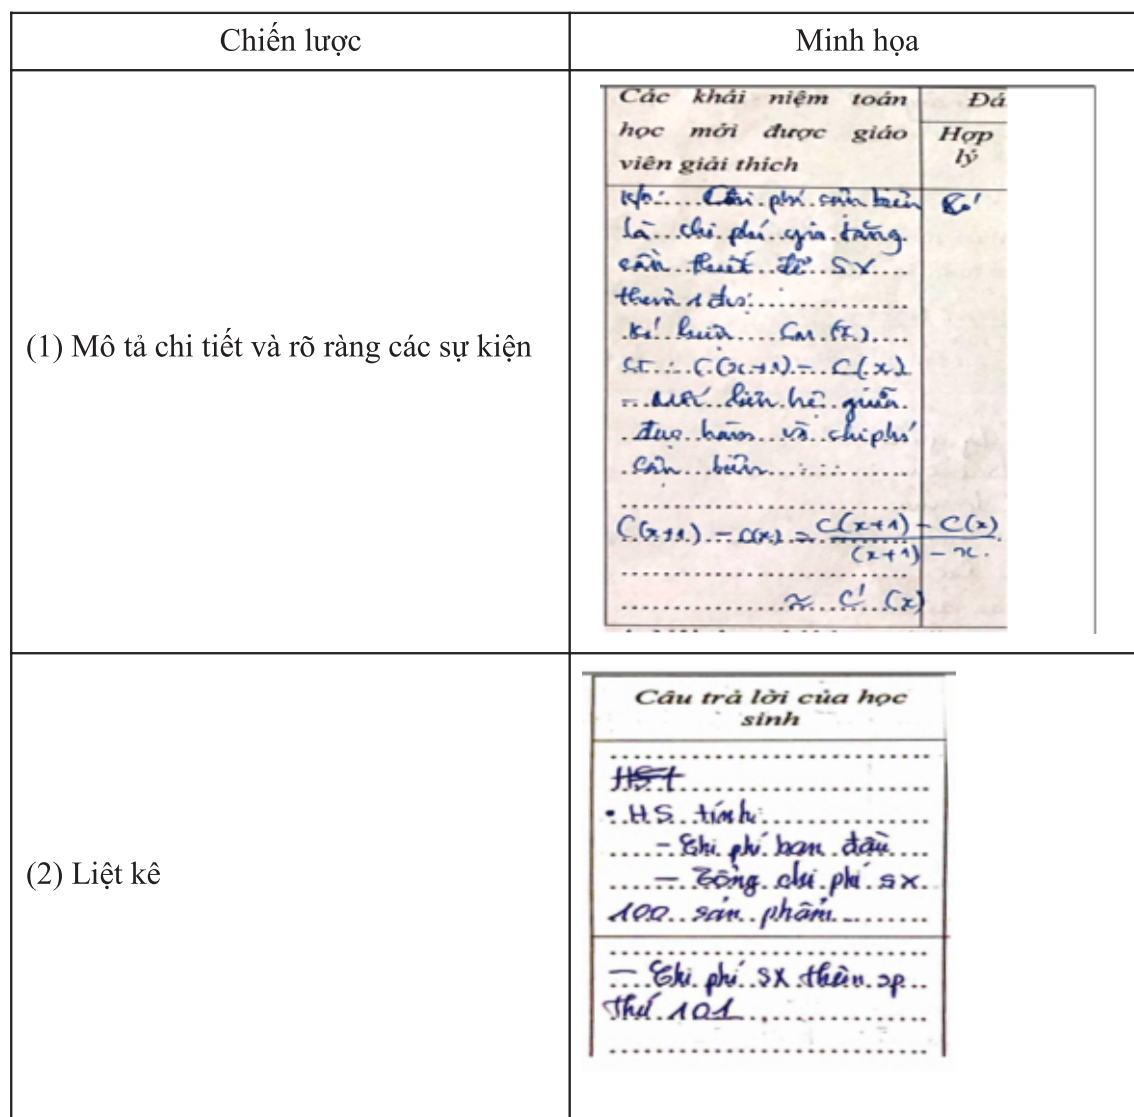 Chiến lược
Minh họa
(1) Mô tả chi tiết và rõ ràng các sự kiện
Các khái niệm toán
học mới được giáo
viên giải thích
Đá
Hợp
lý
K/n: Chi phí cận biên
là chi phí gia tăng
cần thiết để SX
thêm 1 đv.
Kí hiệu CM (x)
CT: C(x+1) - C(x)
- Mối liên hệ giữa
đạo hàm và chi phí
cận biên
C(x+1) - C(x) = C(x+1) - C(x)
(x+1) - x
≈ C' (x)
(2) Liệt kê
Câu trả lời của học
sinh
HS1
• HS tính:
- Chi phí ban đầu
- Tổng chi phí SX
100 sản phẩm
- Chi phí SX thêm sp
thứ 101